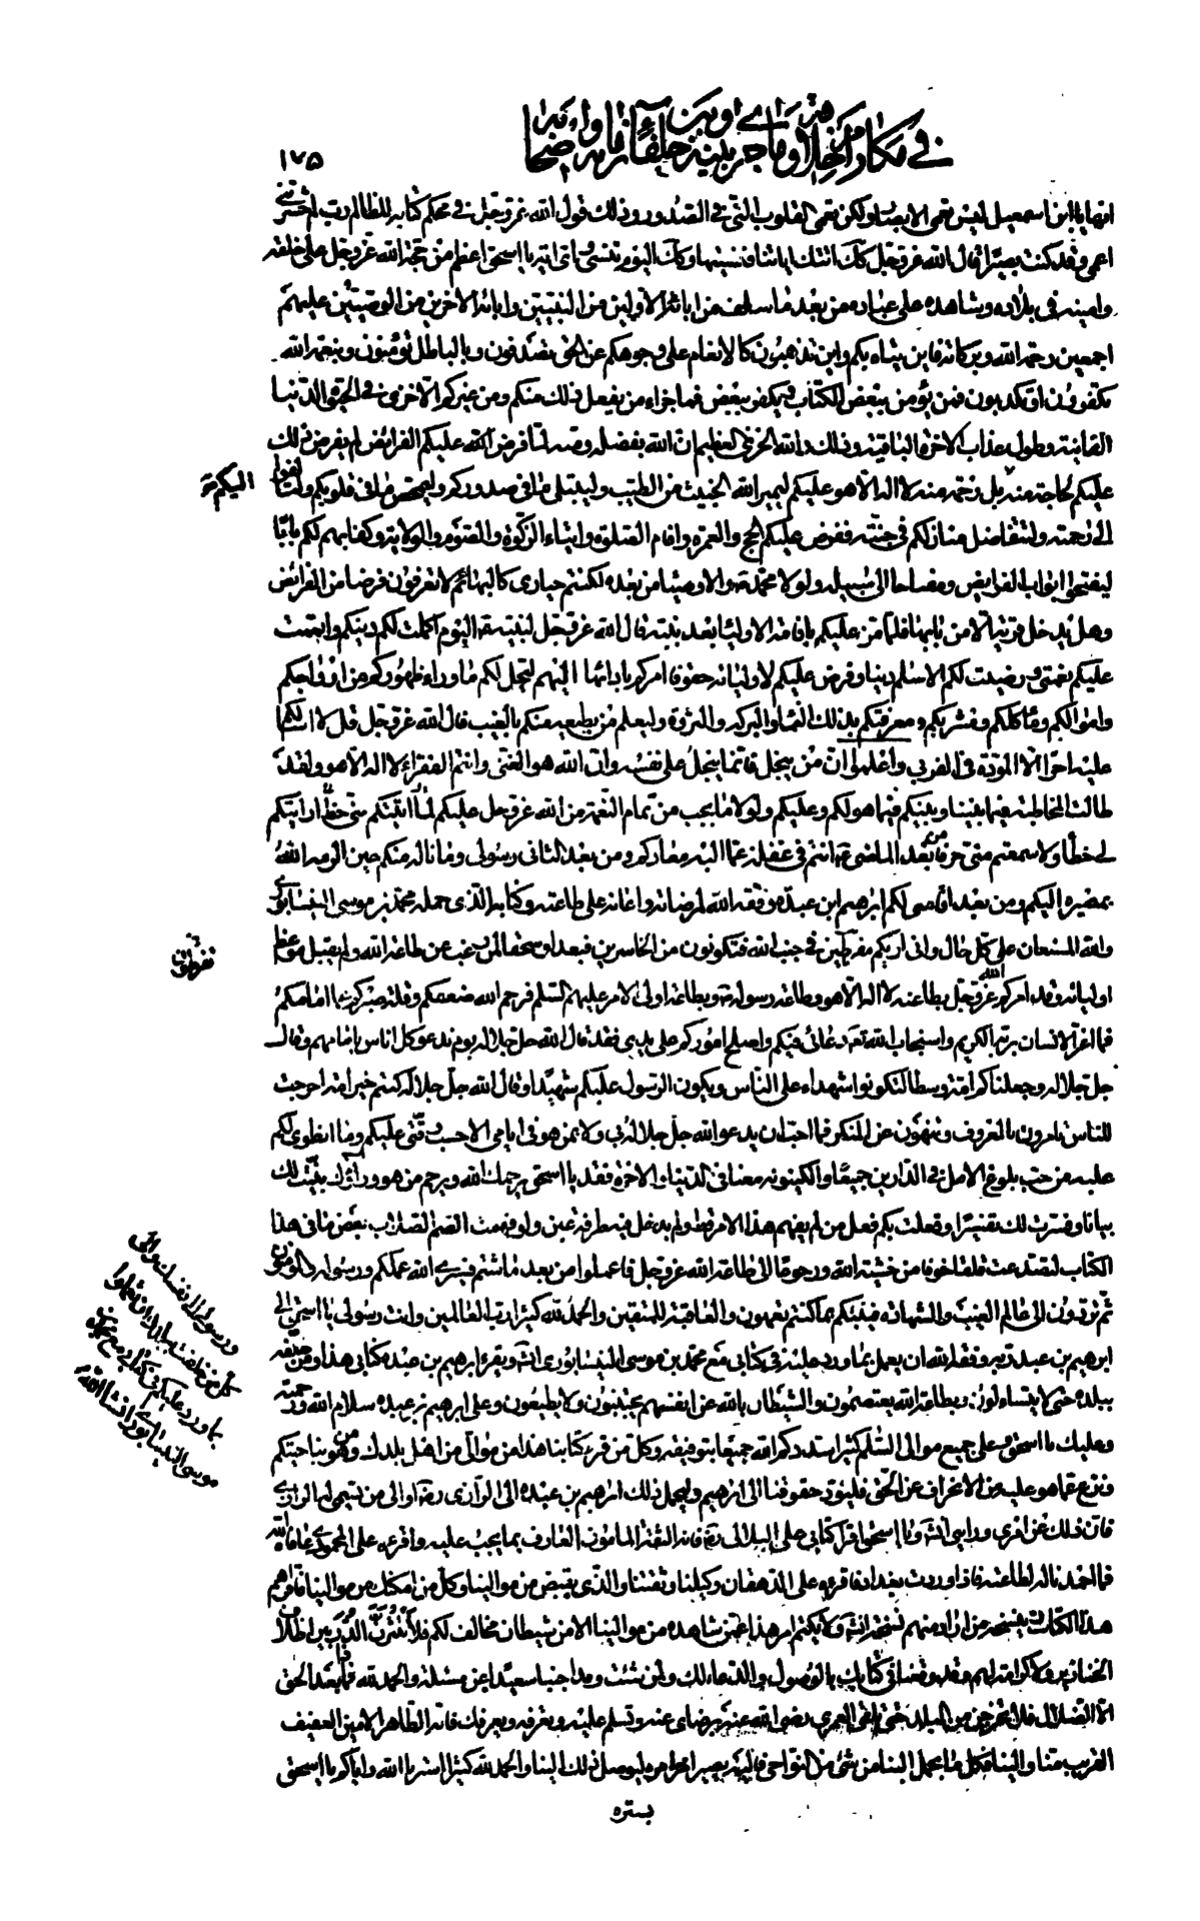 في مكارم اخلاقه وما جرى بينه وبين خلفاء زمانه ونوادره
١٧٥
انها يا ابن اسمعيل ليس تعمى الابصار ولكن تعمى القلوب التي في الصدور وذلك قول الله عز وجل في محكم كتابه للظالم رب لم حشرتني
اعمى وقد كنت بصيرا قال الله عز وجل كذلك اتتك اياتنا فنسيتها وكذلك اليوم تنسى واى اية يا اسحق اعظم من حجة الله عز وجل على خلقه
وامينه في بلاده وشاهده على عباده من بعد ما سلف من ابائه الاولين من النبيين وابائه الاخرين من الوصيين عليهم
اجمعين رحمة الله وبركاته فاين يتاه بكم واين تذهبون كالانعام على وجوهكم عن الحق تصدفون وبالباطل تؤمنون وبنعمة الله
تكفرون او تكذبون فمن يؤمن ببعض الكتاب ويكفر ببعض فما جزاء من يفعل ذلك منكم ومن غيركم الا خزى في الحيوة الدنيا
الفانية وطول عذاب الاخرة الباقية وذلك والله الخزى العظيم ان الله بفضله ومنه لما فرض عليكم الفرائض لم يفرض ذلك
عليكم لحاجة منه بل رحمة منه لا اله الا هو عليكم ليميز الله الخبيث من الطيب وليبتلى ما في صدوركم وليمحص ما في قلوبكم ولتتسابقوا
اليكم
الى رحمته ولتتفاضل منازلكم في جنته ففرض عليكم الحج والعمرة واقام الصلوة وايتاء الزكوة والصوم والولاية وكفا بهم لكم بابا
ليفتحوا ابواب الفرايض ومفتاحا الى سبيله ولولا محمد والاوصياء من بعده لكنتم حيارى كالبهائم لا تعرفون فرضا من الفرائض
وهل يدخل قرية الا من بابها فلما من عليكم باقامة الاولياء بعد نبيه قال الله عز وجل لنبيه اليوم اكملت لكم دينكم واتممت
عليكم نعمتي ورضيت لكم الاسلام دينا وفرض عليكم لاوليائه حقوقا امركم بادائها اليهم ليحل لكم ما وراء ظهوركم من ازواجكم
واموالكم وماكلكم ومشربكم ومعرفتكم بذلك النماء والبركة والثروة وليعلم من يطيعه منكم بالغيب قال الله عز وجل قل لا اسئلكم
عليه اجرا الا المودة في القربى واعلموا ان من يبخل فانما يبخل على نفسه وان الله هو الغني وانتم الفقراء لا اله الا هو ولقد
طالت المخاطبة فيما بيننا وبينكم فيما هو لكم وعليكم ولولا ما يجب من تمام النعمة من الله عز وجل عليكم لما اتيتكم مني خط ارايتكم
لي خطا ولا سمعتم مني حرفا من بعد الماضي انتم في غفلة عما اليه معادكم ومن بعد الثاني رسولى وما ناله منكم حين اكرمه الله
بمصيره اليكم ومن بعد اقامتى لكم ابرهيم ابن عبده وفقه الله لمرضاته واعانه على طاعته وكتابه الذي حمله محمد بن موسى النيسابورى
والله المستعان على كل حال وانى اريكم مفرطين في جنب الله فتكونون من الخاسرين فبعدا وسحقا لمن رغب عن طاعة الله ولم يقبل مواعظ
تفرطون
اوليائه وقد امركم الله عز وجل بطاعته لا اله الا هو وطاعة رسوله وبطاعة اولى الامر عليهم السلام فرحم الله ضعفكم وقلة صبركم عما امامكم
فما اغر الانسان بربه الكريم واستجاب الله تعه دعائى فيكم واصلح اموركم على يدى فقد قال الله جل جلاله يوم ندعو كل اناس بامامهم وقال
جل جلاله وجعلناكم امة وسطا لتكونوا شهداء على الناس ويكون الرسول عليكم شهيدا وقال الله جل جلاله كنتم خير امة اخرجت
للناس تامرون بالمعروف وتنهون عن المنكر فما احب ان يدعو الله جل جلاله بى ولا بمن هو في ايامى الا حسب رقتى عليكم وما انطوى لكم
عليه من حب بلوغ الامل في الدارين جميعا والكينونة معنا في الدنيا والاخرة فقد يا اسحق يرحمك الله ويرحم من هو وراءك بينت لك
بيانا وفسرت لك تفسيرا وفعلت بكم فعل من لم يفهم هذا الامر قط ولم يدخل فيه طرفة عين ولو فهمت الصم الصلاب بعض ما في هذا
الكتاب لتصدعت قلقا خوفا من خشية الله ورجوعا الى طاعة الله عز وجل فاعملوا من بعد ما شئتم فسيرى الله عملكم ورسوله والمؤمنون
ثم تردون الى عالم الغيب والشهادة فينبئكم بما كنتم تعملون والعاقبة للمتقين والحمد لله كثيرا رب العالمين وانت رسولى يا اسحق الى
ابرهيم بن عبده وفقه الله ان يعمل بما ورد عليه في كتابى مع محمد بن موسى النيسابورى انشه ويقرء ابرهيم بن عبده كتابى هذا ومن خلفه
ورسولى الى نفسك والى
كل من خلفت ببلدك ان تعملوا
بما ورد عليكم في كتابى مع محمد بن
موسى النيسابورى انشاء الله
ببلده حتى لا يتساءلون وبطاعة الله يعتصمون والشيطان بالله عن انفسهم يجتنبون ولا يطيعون وعلى ابرهيم بن عبده سلام الله ورحمته
وعليك يا اسحق وعلى جميع موالى السلام كثيرا سددكم الله جميعا بتوفيقه وكل من قرء كتابنا هذا من موالى من اهل بلدك ومن هو بناحيتكم
ونزع عما هو عليه من الانحراف عن الحق فليؤد حقوقنا الى ابرهيم وليحمل ذلك ابرهيم بن عبده الى الرازى رضه او الى من يسمى له الرازى
فان ذلك عن امرى ورايى انشه ويا اسحق اقرا كتابى على البلالى رضه فانه الثقة المامون العارف بما يجب عليه واقرءه على المحمودى عافاه الله
فما احمدنا له لطاعته فاذا وردت بغداد فاقرءه على الدهقان وكيلنا وثقتنا والذى يقبض من موالينا وكل من امكنك من موالينا فاقرءهم
هذا الكتاب وينسخه من اراد منهم نسخة انشه ولا يكتم امر هذا عمن شاهده من موالينا الا من شيطان مخالف لكم فلا تنثرن الدر بين اظلاف
الخنازير ولا كرامة لهم وقد وقعنا في كتابك بالوصول والدعاء لك ولمن شئت وقد اجبنا سعيدا عن مسئلته والحمد لله فما بعد الحق
الا الضلال فلا تخرجن من البلد حتى تلقى العمرى رضى الله عنه برضاى عنه وتسلم عليه وتعرفه ويعرفك فانه الطاهر الامين العفيف
القريب منا والينا فكل ما يحمل الينا من شئ من النواحى فاليه يصير اخر امره ليوصل ذلك الينا والحمد لله كثيرا سترنا الله واياكم يا اسحق
بستره